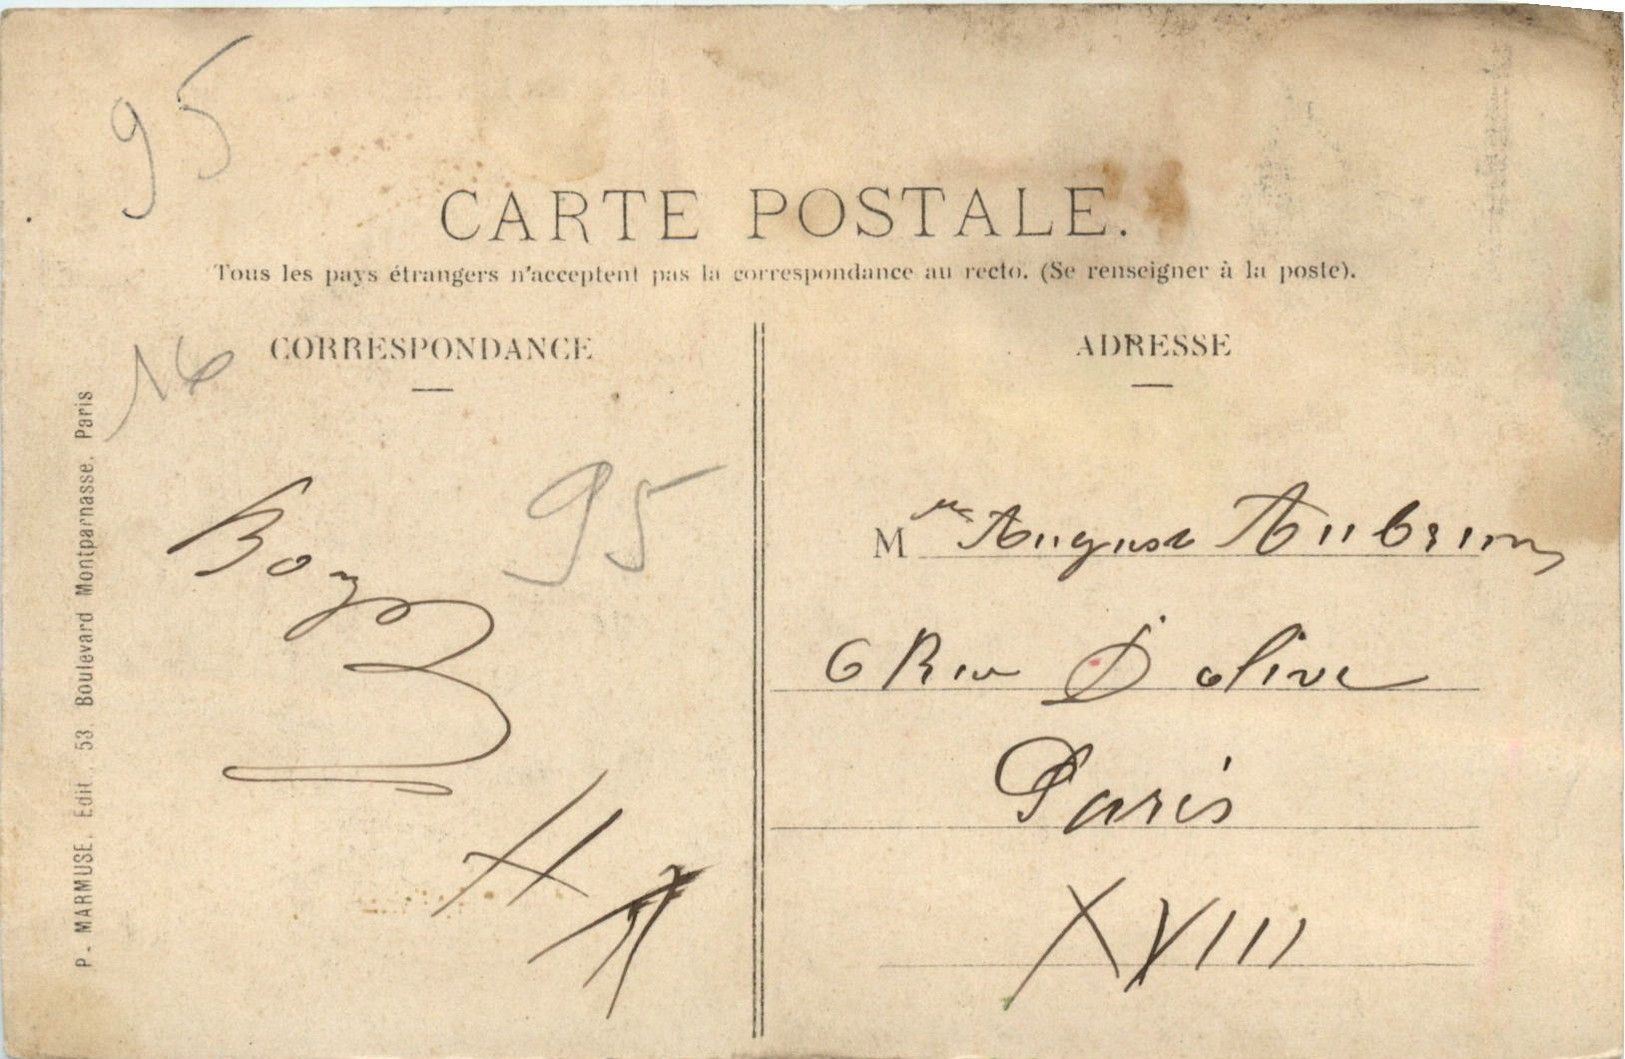 95
CARTE POSTALE.
Tous les pays étrangers n'acceptent pas la correspondance au recto. (Se renseigner à la poste).
CORRESPONDANCE
16
95
P. MARMUSE. Edit. 53 Boulevard Montparnasse. Paris
ADRESSE
Mme Auguste Aubrun
6 Rue D'olive
Paris
XVIII